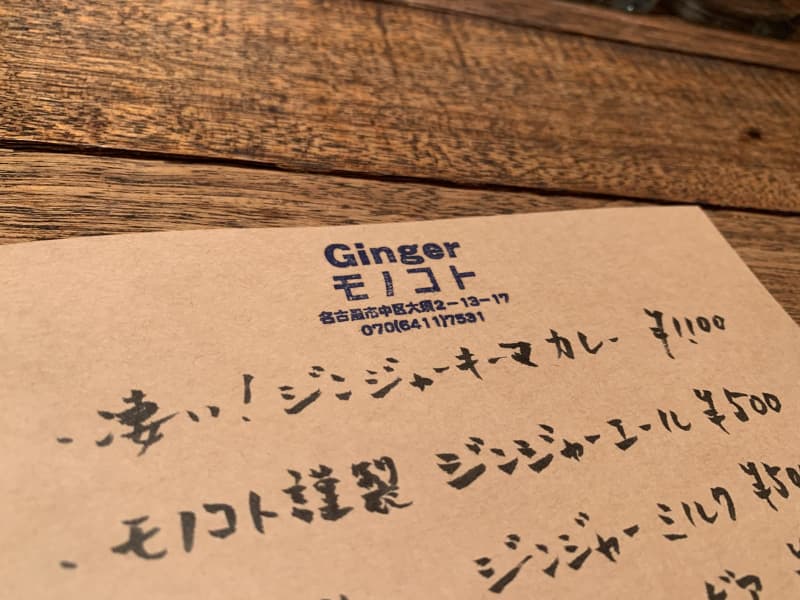 Ginger
モノコト
名古屋市中区大須2-13-17
070(6411)7531
・凄い!ジンジャーキーマカレー ¥1100
・モノコト謹製 ジンジャーエール ¥500
ジンジャーミルク ¥50
ビア